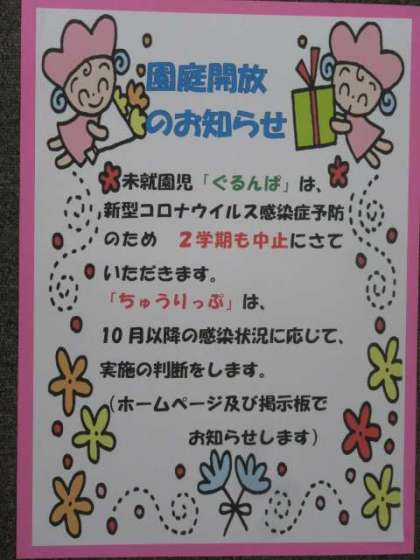 園庭開放
のお知らせ
未就園児「ぐるんぱ」は、
新型コロナウイルス感染症予防
のため　２学期も中止にさて
いただきます。
「ちゅうりっぷ」は、
10月以降の感染状況に応じて、
実施の判断をします。
（ホームページ及び掲示板で
お知らせします）